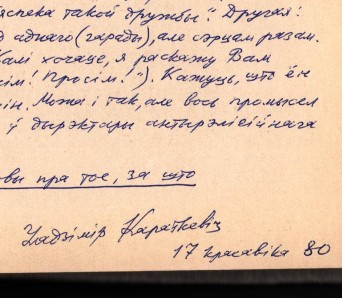 яспека такой дружбы? Другая:
д аднаго (гарады), але сэрцам разам.
Калі хочаце, я раскажу Вам
сім! Просім!"). Кажуць, што ён
ін. Можа і так, але вось промысел
і дырэктары антырэлігійнага
вы пра тое, за што
Уладзімір Караткевіч
17 красавіка 80